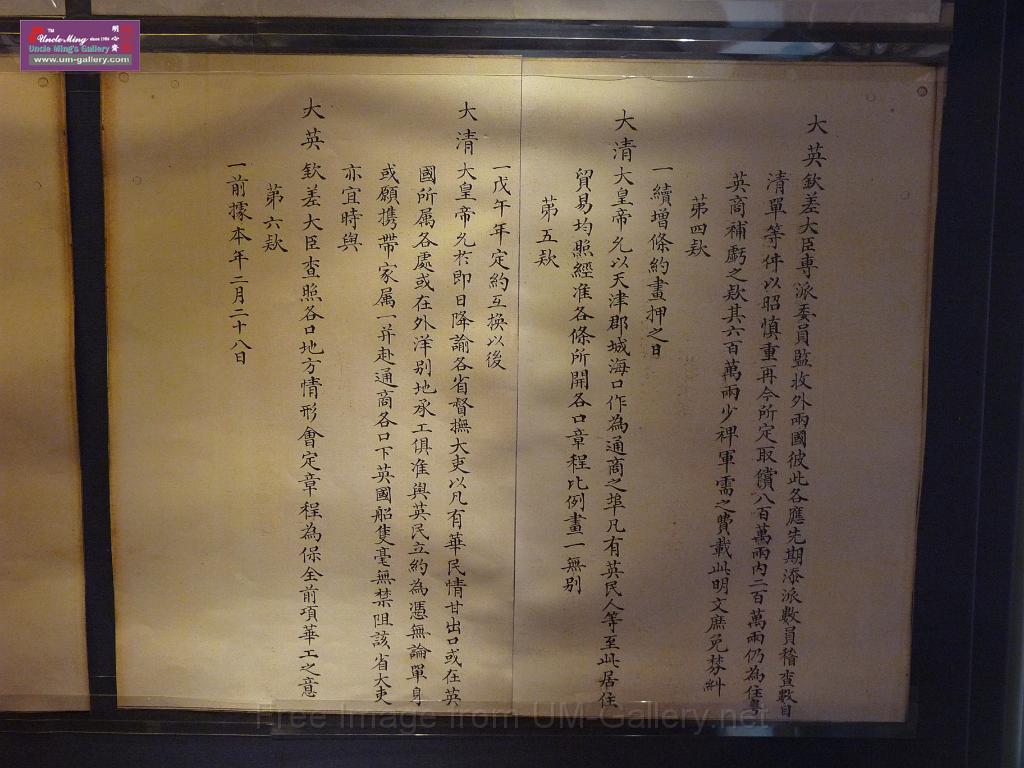 明心齋
TM
Uncle Ming since 1986
Uncle Ming's Gallery
www.um-gallery.com
大英欽差大臣專派委員監收外兩國彼此各應先期添派數員稽查數目
清單等件以昭慎重再今所定取償八百萬兩內二百萬兩仍為住粵
英商補虧之款其六百萬兩少裨軍需之費載此明文庶免棼糾
第四款
一續增條約畫押之日
大清大皇帝允以天津郡城海口作為通商之埠凡有英民人等至此居住
貿易均照經准各條所開各口章程比例畫一無別
第五款
一戊午年定約互換以後
大清大皇帝允於即日降諭各省督撫大吏以凡有華民情甘出口或在英
國所屬各處或在外洋別地承工俱准與英民立約為憑無論單身
或願攜帶家屬一并赴通商各口下英國船隻毫無禁阻該省大吏
亦宜時與
大英欽差大臣查照各口地方情形會定章程為保全前項華工之意
第六款
一前據本年二月二十八日
Free Image from UM-Gallery.net